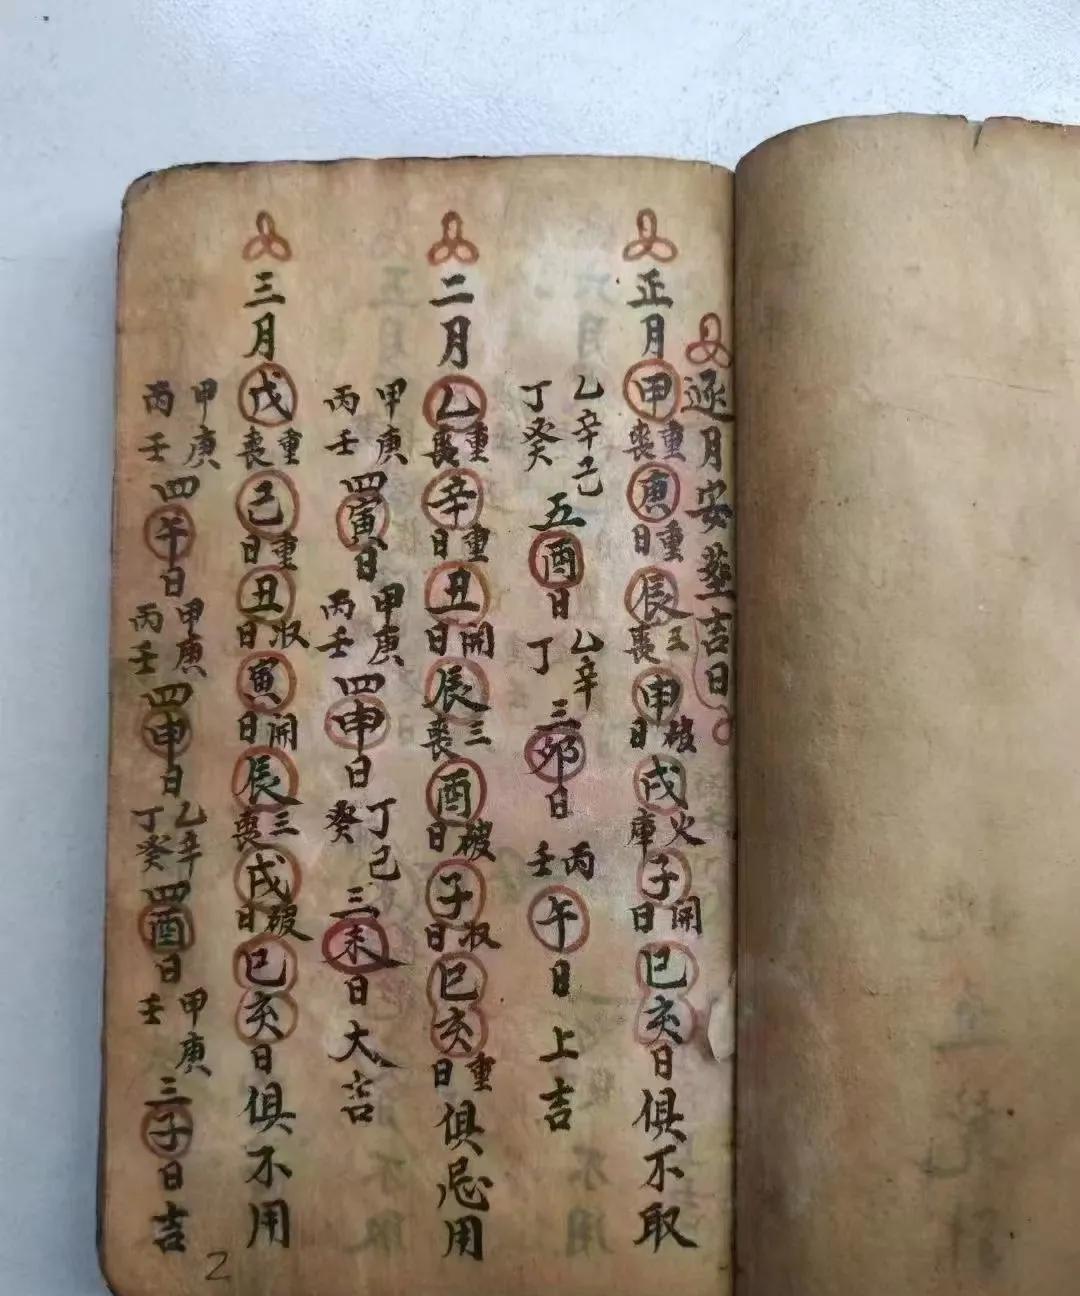 逐月安葬吉日
正月甲重喪庚重日辰三喪申破日戌火庫子開日巳亥日俱不取
乙辛己丁癸五酉日乙辛丁三卯日丙壬午日上吉
二月乙重喪辛重日丑開日辰三喪酉破日子收日巳亥重日俱忌用
甲庚丙壬四寅日甲庚丙壬四申日丁己癸三未日大吉
三月戊重喪己重日丑収日寅開日辰三喪戌破日巳亥日俱不用
甲庚丙壬四午日甲庚丙壬四申日乙辛丁癸四酉日甲庚壬三子日吉
2